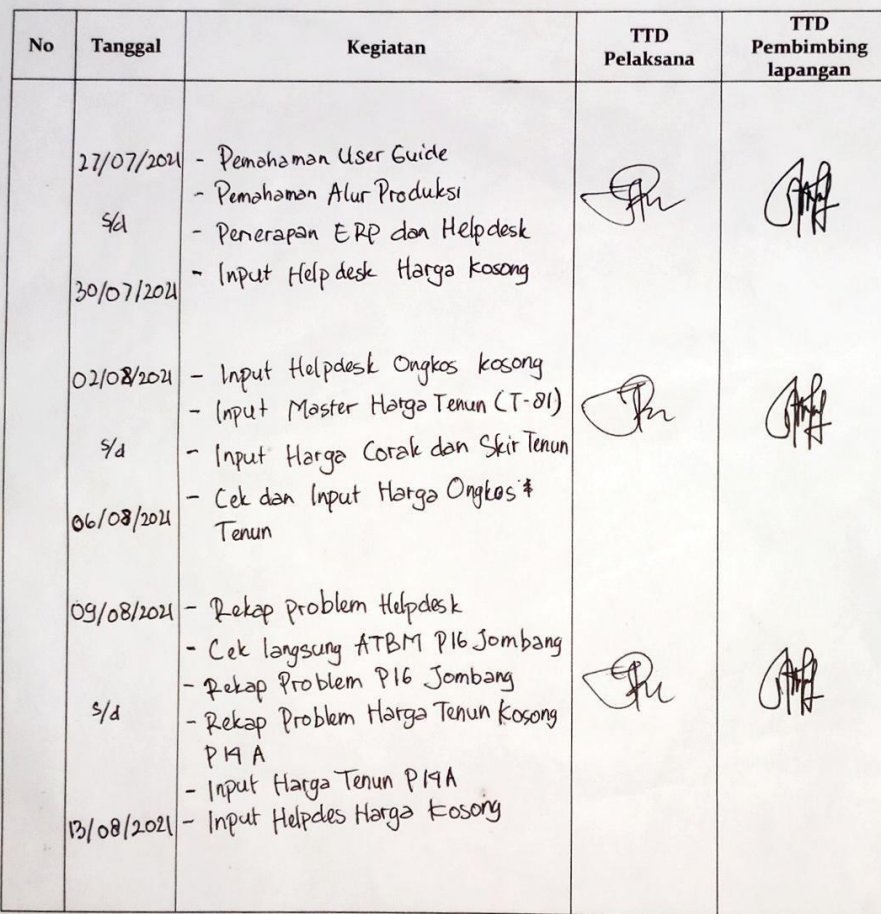 No Tanggal Kegiatan TTD Pelaksana TTD Pembimbing lapangan
27/07/2021 - Pemahaman User Guide
- Pemahaman Alur Produksi
s/d - Penerapan ERP dan Helpdesk
30/07/2021 - Input Helpdesk Harga Kosong
02/08/2021 - Input Helpdesk Ongkos kosong
- Input Master Harga Tenun (T-81)
s/d - Input Harga Corak dan Skir Tenun
06/08/2021 - Cek dan Input Harga Ongkos
Tenun
09/08/2021 - Rekap problem Helpdesk
- Cek langsung ATBM P16 Jombang
- Rekap Problem P16 Jombang
s/d - Rekap Problem Harga Tenun Kosong
P19 A
- Input Harga Tenun P19A
13/08/2021 - Input Helpdes Harga Kosong